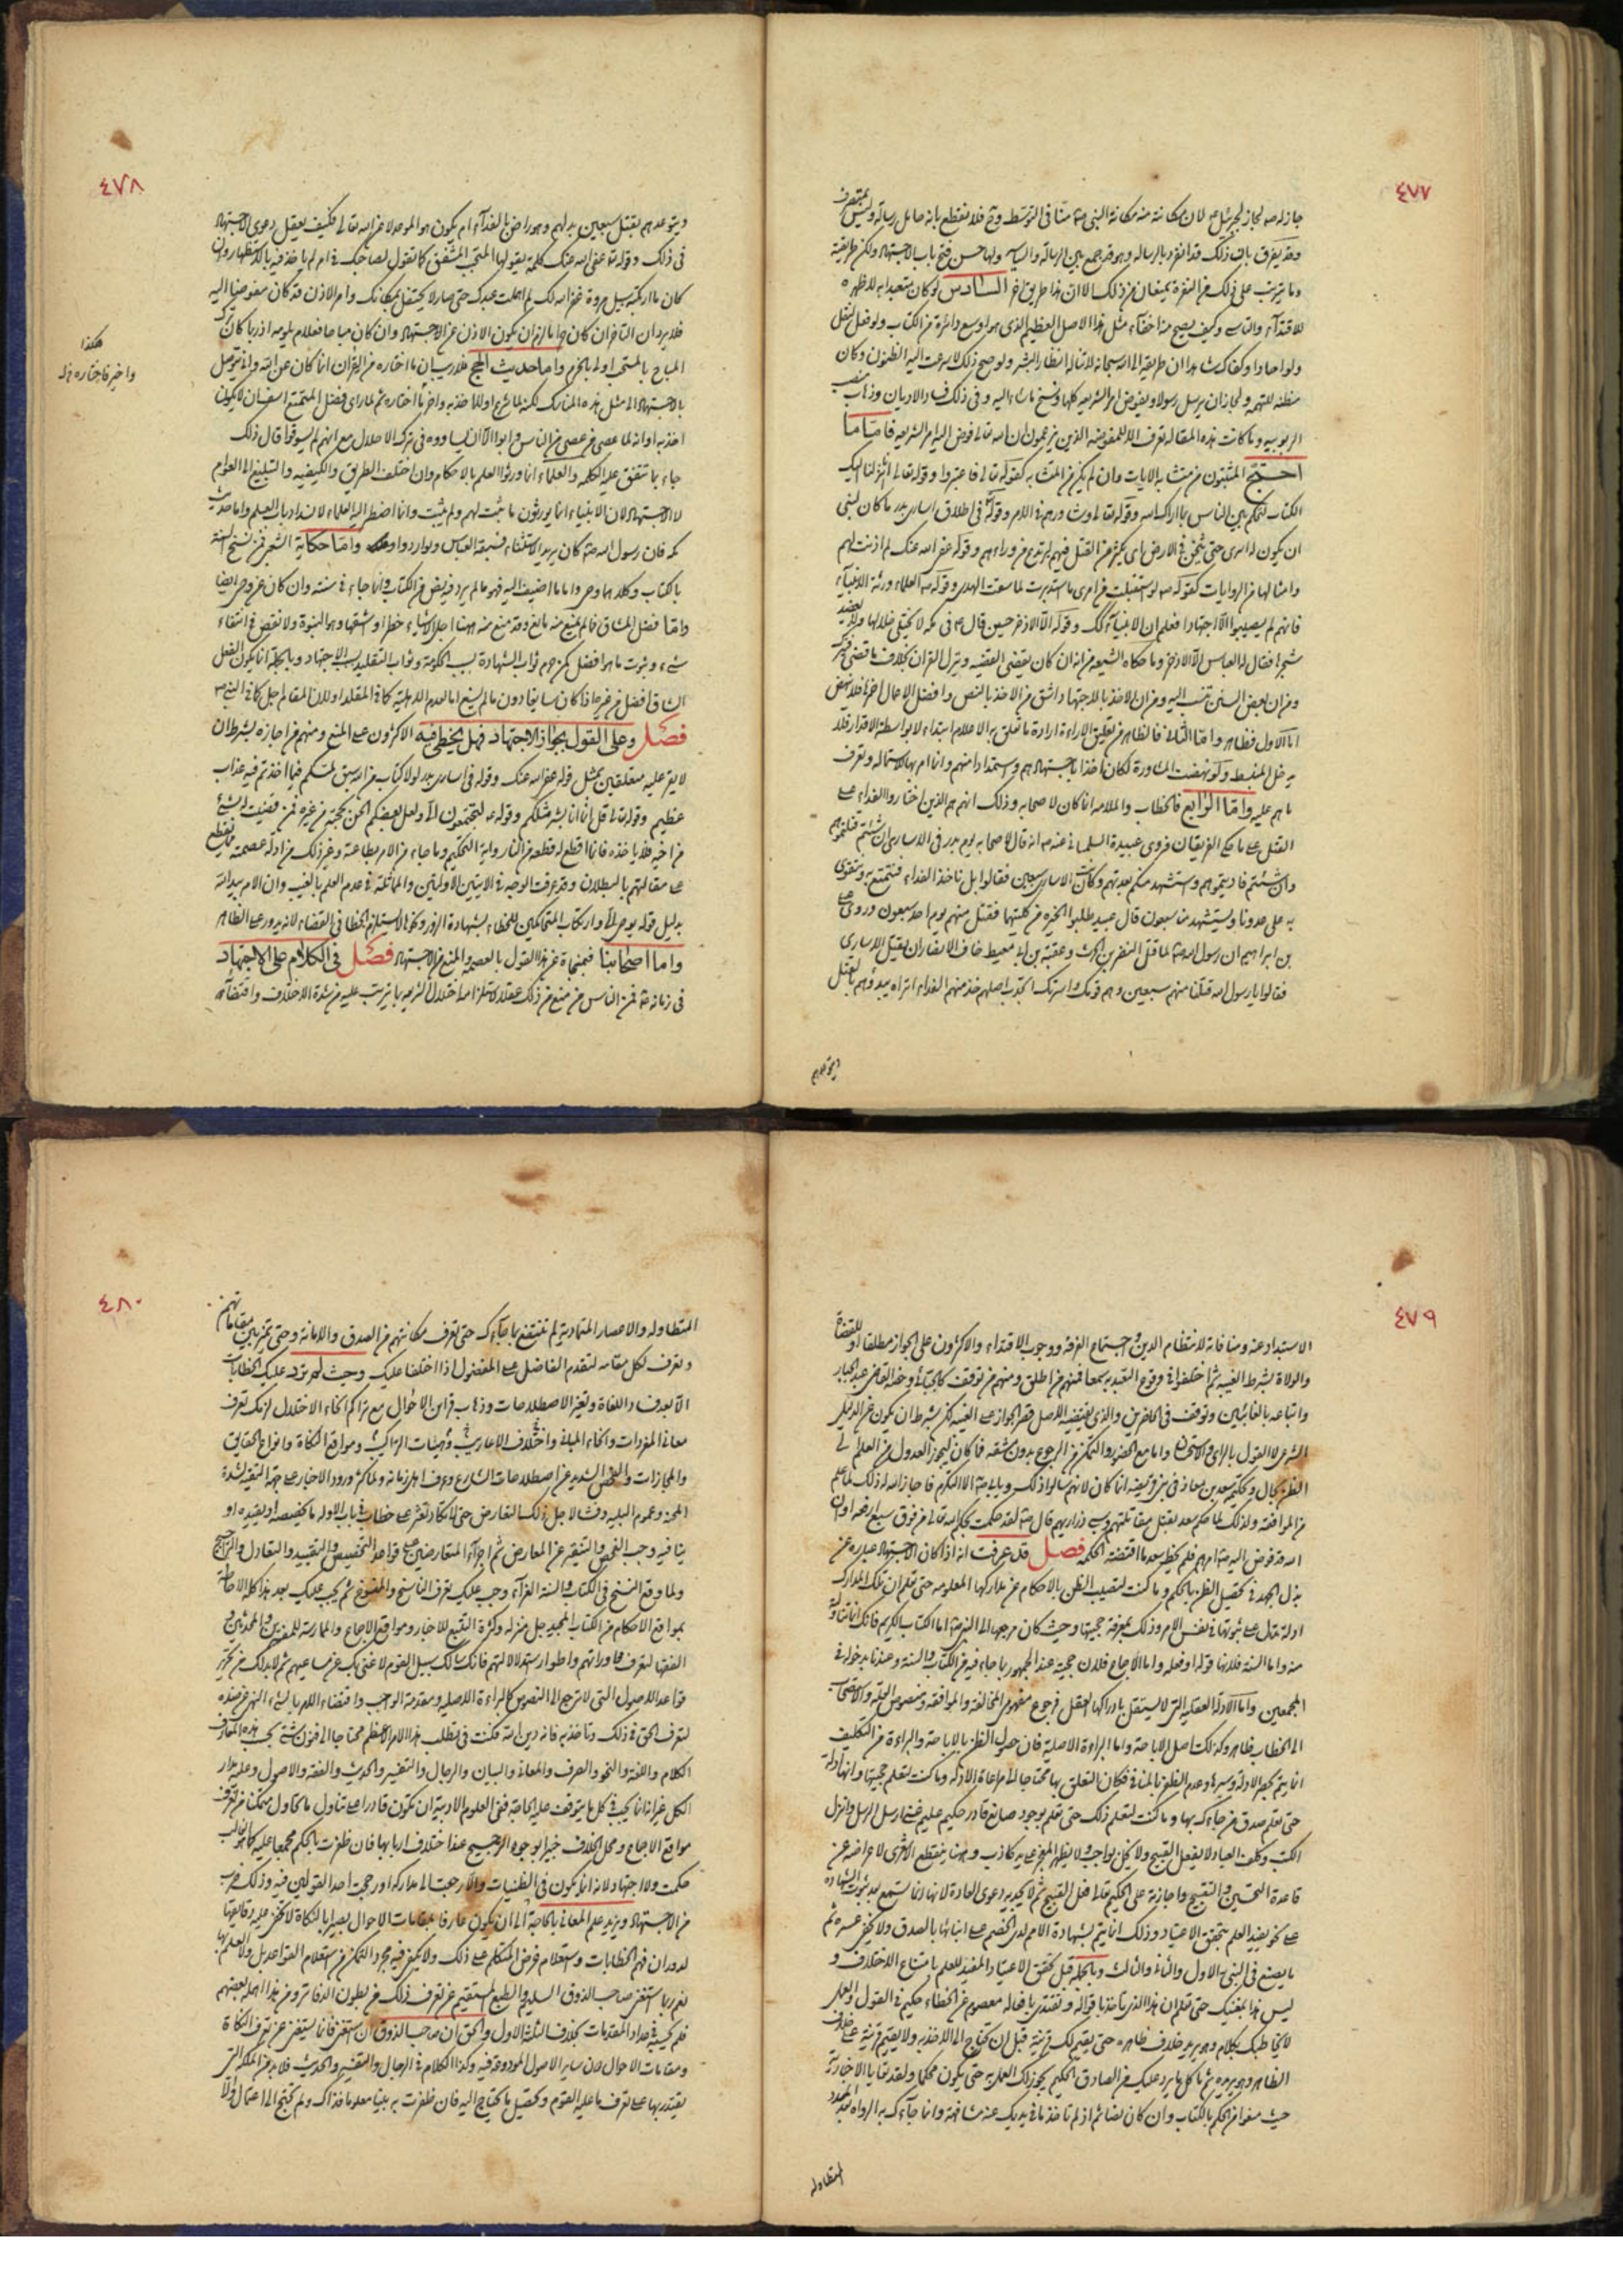 ٤٧٧
جاز له صه لجاز لجبرئيل عه لان مكانته منه مكانة النبى صه منّا فى التوسّط وح فلا نقطع بانه حامل رسالة وليس بمتصرف
وقد يفرق بان ذلك قد انفرد بالرساله وهو قد جمع بين الرسالة والسياسة ولها حسن فتح باب الاجتهاد ولكن طريقية
وما يترتب على ذلك من النفرة يمنعان من ذلك الا ان هذا طريق اخر السادس لو كان متعبدا به لاظهره
للاقتدآء والتاسى وكيف يصح منه اخفآء مثل هذا الاصل العظيم الذى هو اوسع دائرة من الكتاب ولو فعل لنقل
ولو احادا وكفاك
مظنة للتهمه ولجاز ان يرسل رسولا ويفوض امر الشريعه كلها وينسخ ما شاء اليه وفى ذلك فساد الاديان وذهاب منصب
الربوبيه وما كانت هذه المقاله تعرف الا للمفوضه الذين يزعمون ان الله تعالى فوض اليه امر الشريعه
احتج المثبتون من متشابه الايات وان لم يكن من المتشابه كقوله تعالى فاعتبروا وقوله تعالى انا انزلنا اليك
الكتاب لتحكم بين الناس بما اراك الله وقوله تعالى وشاورهم فى الامر وقوله فى اطلاق اسارى بدر ما كان لنبى
ان يكون له اسرى حتى يثخن فى الارض اى يكثر من القتل فيهم ليرتدع من وراءهم وقوله عفى الله عنك لم اذنت لهم
وامثالها من الروايات كقوله صه لو استقبلت من امرى ما استدبرت لما سقت الهدى وقوله صه العلماء ورثة الانبيآء
فانهم لم يصيبوا الا اجتهادا فعلم ان الانبيآء كك وقوله الا الاذخر حين قال صه فى مكه لا يختلى خلالها ولا يعضد
شجرها فقال له العباس الا الاذخر وما حكاه الشيعه من انه ان كان يقضى القضيه وينزل القران بخلاف ما قضى
ومن ان بعض السنن تنسب اليه ومن ان الاخذ بالاجتهاد اشق من الاخذ بالنص وافضل الاعمال احمزها
اما الاول فظاهر واما الثانى فالظاهر من تعليق الاراءة ارادة ما تعلق به الاعلام ابتداء لا بواسطة الاقدار فلا
يدخل المنبسط ولو نهضت المشاورة لكان اخذا باجتهادهم واستمدادا منهم وانما امر بها للاستماله وتعرف
ما هم عليه واما الرابع فالخطاب والملامه انما كان لاصحابه وذلك انهم هم الذين اختاروا الفداء على
القتل على ما حكى الفريقان فروى عبيدة السلمانى عنه صه انه قال لاصحابه يوم بدر فى الاسارى ان شئتم قتلتموهم
وان شئتم فاديتموهم واستشهد منكم بعدتهم وكانت الاسارى سبعين فقالوا بل ناخذ الفداء فنتمتع به ونتقوى
به على عدونا ويستشهد منا سبعون قال عبيد طلبوا الخيره من كلتيهما فقتل منهم يوم احد سبعون وروى على
بن ابراهيم ان رسول الله صه لما قتل النضر بن الحرث وعقبة بن ابى معيط خاف الانصار ان يقتل الاسارى
فقالوا يا رسول الله قتلنا منهم سبعين وهم قومك واسرتك اتجذ اصلهم خذ منهم الفداء
ويتوعدهم
٤٧٨
ويتوعدهم بقتل سبعين بدلهم وهو راض بالفدآء ام يكون هو الموعد لا عن الله تعالى فكيف يعقل دعوى الاجتهاد
فى ذلك وقوله تعالى عفى الله عنك كلمة يقولها المحب المشفق كما تقول لصاحبك فى امر لم ياخذ فيه بالاستظهار وان
كان ما ارتكبه سبيل مروة غفر الله لك لم امهلت عبدك حتى صار لا يحتفل بمكانك وامر الاذن قد كان مفوضا اليه
فلا يرد ان التاخير ان كان واجبا لزم ان يكون الاذن عن الاجتهاد وان كان مباحا فعلام يلومه اذ ربما كان ترك
المباح بالمستحب اولى بالحزم واما حديث الحج فلا ريب ان ما اختاره من القران انما كان عن الله والا لم يتوسل
بالاجتهاد الى مثل هذه المناسك لكنه لما شرع اولا اخذ به واخيرا اختاره ثم لما راى فضل التمتع اسف ان لا يكون
هكذا
واخير فاختاره
اخذ به او انه لما عصى من عصى من الناس وابوا الا ان يساووه فى ترك الاحلال مع انهم لم يسوقوا قال ذلك
جاء بما تتفق عليه الكلمه والعلماء انما ورثوا العلم بالاحكام وان اختلف الطريق والكيفيه والتبليغ الى العوام
لا الاجتهاد لان الانبياء انما يورثون ما ثبت لهم ولم يثبت وانما اضطر اليه العلماء لانسداد باب العلم واما حديث
مكه فان رسول الله صه كان يريد الاستثناء فسبقه العباس واما حكاية الشعر فمن نسخ السنة
بالكتاب وكلاهما وحى واما ما اضيف اليه فهو ما لم يرد فيه نص من الكتاب وانما جاء فى سنته وان كان عن وحى ايضا
واما فضل المشاق فما لم يمنع منه مانع وقد منع منه ههنا اجل الاشياء خطرا واشقها وهو النبوة ولا نقص فى انتفاء
شىء وثبوت ما هو افضل كمن حرم ثواب الشهادة بسبب الحكومة وثواب التقليد بسبب الاجتهاد وبالجمله انما يكون الفعل
الشاق افضل من غيره اذا كان سايغا دون ما لم يسغ اما لعدم الاهلية كما فى المقلد او لان المقام اجل كما فى النبى صه
فصل وعلى القول بجواز الاجتهاد فهل يخطى فيه الاكثرون على المنع ومنهم من اجازه بشرط ان
لا يقر عليه متعلقين بمثل قوله عفى الله عنك وقوله فى اسارى بدر لولا كتاب من الله سبق لمسكم فيما اخذتم فيه عذاب
عظيم وقوله تعالى قل انما انا بشر مثلكم وقوله عه لتختصمون لدى ولعل بعضكم الحن بحجته من غيره فمن قضيت له بشىء
من اخيه فلا ياخذه فانما اقطع له قطعه من النار ولاية التحكيم وما جاء من الامر بطاعته وغير ذلك من ادلة عصمته
على مقالتهم بالبطلان وقد عرفت الوجه فى الايتين الاوليتين والمماثلة فى عدم العلم بالغيب وان الامر بيد الله
بدليل قوله يوحى الى وارتكاب المتحاكمين للخطاء بشهادة الزور ونحوها لا يستلزم الخطا فى القضاء لانه يدور على الظاهر
واما اصحابنا فبمنجاة عن هذا القول بالعصمه والمنع من الاجتهاد فصل فى الكلام على الاجتهاد
فى زمانه صه فمن الناس من منع من ذلك عقلا لاستلزامه اختلال الشريعه بما يترتب عليه من شدة الاختلاف واقتضائه
٤٧٩
الاستبداد عنه ومنافاته لانتظام الدين واجتماع الفرقه ووجوب الاقتداء والاكثرون على الجواز مطلقا او للقضاة
والولاة بشرط الغيبه ثم اختلفوا فى وقوع التعبد به سمعا فمنهم من اطلق ومنهم من توقف كالجبائى وخصه القاضى عبد الجبار
واتباعه بالغائبين وتوقف فى الحاضرين والذى يقتضيه الاصل قصر الجواز على الغيبه لكن بشرط ان يكون عن الدليل
الشرعى لا القول بالراى والاستحسان واما مع الحضور والتمكن من الرجوع بدون مشقه فما كان ليجوز العدول من العلم الى
الظن بحال وتحكيم سعد بن معاذ فى بنى قريضه انما كان لانهم سالوا ذلك
من الموافقه ولذلك لما حكم سعد بقتل مقاتلتهم وسبى ذراريهم قال صه لقد حكمت بحكم الله تعالى من فوق سبع ارقعة اوان
الله قد فوض اليه صه امرهم فلم يحظر بعد ما اقتضته الحكمه فصل قد عرفت انه اذا كان الاجتهاد عبارة عن
بذل الجهد فى تحصيل الظن بالحكم وما كنت لتصيب الظن بالاحكام عن مداركها المعلومه حتى تعلم ان تلك المدارك
ادلة تدل على ثبوتها فى نفس الامر وذلك بمعرفة حجيتها وحيث كان مرجعها الى النبى صه اما الكتاب الكريم فانك انما تتناوله
منه واما السنة فلانها قوله او فعله واما الاجماع فلان حجيته عند الجمهور بما جاء فيه من الكتاب والسنة وعندنا بدخوله فى
المجمعين واما الادلة العقليه التى لا يستقل بادراكها العقل فرجوع مفهومى المخالفة والموافقه ومنصوص العلة والاستصحاب
الى الخطاب ظاهر وكذلك اصل الاباحة واما البراءة الاصليه فان حصول الظن بالاباحة والبراءة من التكليف
انما يتم بحصر الادلة وسبرها وعدم الظفر بالمنافى فكان التعلق بها محتاجا الى مراعاة الادله وما كنت لتعلم حجيتها وانها ادلة
حتى تعلم صدق من جاءك بها وما كنت لتعلم ذلك حتى تعلم بوجود صانع قادر حكيم عليم غنى ارسل الرسل وانزل
الكتب وكلف العباد لا يفعل القبيح ولا يخل بواجب ولا يظهر المعجز على يد كاذب وههنا ينقطع الاشعرى لاعراضه عن
قاعدة التحسين والتقبيح واجازته على الحكيم تعالى فعل القبيح ثم لا يجديه دعوى العادة لانها انما تسمع بعد ثبوت الشهاده
على نحو يفيد العلم بتحقق الاعتياد وذلك انما يتم بشهادة الامم لدى الخصم على انبيائها بالصدق ولا يخفى عسره ثم
ما يصنع فى النبى صه الاول والثانى والثالث وبالجمله قبل تحقق الاعتياد المفيد للعلم بامتناع الاختلاف و
ليس هذا بمغنيك حتى تعلم ان هذا الذى تاخذ باقواله وتقتدى بافعاله معصوم عن الخطاء حكيم فى القول والعمل
لا يخاطبك بكلام وهو يريد خلاف ظاهره حتى يقيم لك قرينة قبل ان تحتاج الى الاخذ به ولا يقيم قرينة على خلاف
الظاهر وهو يريده ثم ما كل ما يرد عليك من الصادق الحكيم يجوز لك العمل به حتى يكون محكما
حيث منعوا من الحكم بالكتاب وان كان نصا ثم اذ لم تاخذ ما فى يديك عنه مشافهة وانما جآءك به الرواة بعد المدد
المتطاوله
٤٨٠
المتطاوله والاعصار المتماديه لم تنتفع بما جآءك حتى تعرف مكانتهم من الصدق والامانة وحتى تميز بين مقاماتهم
وتعرف لكل مقامه لتقدم الفاضل على المفضول اذا اختلفا عليك وحيث لم ترد عليك الخطابات
الا بعد فساد اللغة وتغير الاصطلاحات وذهاب قراين الاحوال مع تراكم انحاء الاختلال لزمك تعرف
معانى المفردات وانحاء المبانى واختلاف الاعاريب وهيئات التراكيب ومواقع النكاة وانواع الحقايق
والمجازات والفحص الشديد عن اصطلاحات الشارع وعرف اهل زمانه ولما كثر ورود الاخبار على جهة التقيه لشدة
المحنه وعموم البليه وفشا لاجل ذلك التعارض حتى لا تكاد تعثر على خطاب فى باب الا وله ما يخصصه او يقيده او
ينافيه وجب الفحص والتنقير عن المعارض ثم اجرآء المتعارضين على قواعد التخصيص والتقييد والتعادل والتراجيح
ولما وقع النسخ فى الكتاب والسنة الغرآء وجب عليك تعرف الناسخ والمنسوخ ثم يجب عليك بعد هذا كله الاحاطة
بمواقع الاحكام من الكتاب المجيد جل منزله وكثرة التتبع للاخبار ومواقع الاجماع والممارسة للمفسرين والمحدثين و
الفقهاء لتعرف محاوراتهم واطوار استدلالاتهم فانك سالك سبيل القوم لا غنى بك عن مساعيهم ثم لا بد لك من تحرير
قواعد الاصول التى لا ترجع الى النصوص كالبراءة الاصليه ومقدمة الواجب واقتضاء الامر بالشىء النهى عن ضده
لتعرف الحق فى ذلك وتاخذ به فانه دين الله فكنت فى تطلب هذا الامر الاعظم محتاجا الى فنون شتى بحسب هذه المعارف
الكلام واللغة والنحو والصرف والمعانى والبيان والرجال والتفسير والحديث والفقه والاصول وعليه مدار
الكل غير انه انما يجب فى كل ما يتوقف عليه الحاجة ففى العلوم الادبية ان تكون قادرا على تناول ما تحاول متمكنا من تعرف
مواقع الاجماع ومحل الخلاف خبيرا بوجوه الترجيح عند اختلاف اربابها فان ظفرت بالحكم مجمعا عليه كما هو الغالب
حكمت ولا اجتهاد لانه انما يكون فى الظنيات والا رجعت الى مداركه او رجحت احد القولين فيه وذلك ضرب
من الاجتهاد ويزيد علم المعانى بالحاجة الى ان يكون عارفا بمقامات الاحوال بصيرا بالنكاة لا تخفى عليه دقايقها
لدوران فهم الخطابات واستعلام غرض المتكلم على ذلك ولا يكفى فيه مجرد التمكن من استعلام القواعد بل ولا العلم بها
نعم ربما استغنى صاحب الذوق السليم والطبع المستقيم عن تعرف ذلك من بطون الدفاتر ومن هذا اهمله بعضهم
فلم يحسبه فى عداد المقدمات بخلاف الثلثة الاول والحق ان صاحب الذوق ان استغنى فانما يستغنى عن تعرف النكاة
ومقامات الاحوال لا عن ساير الاصول المودوعة فيه وكذا الكلام فى الرجال والتفسير والحديث فلا بد من الملكه التى
يقتدر بها على تعرف ما عليه القوم وتحصيل ما يحتاج اليه فان ظفرت به بينا معلوما فذاك ولم تحتج الى اعمال والا